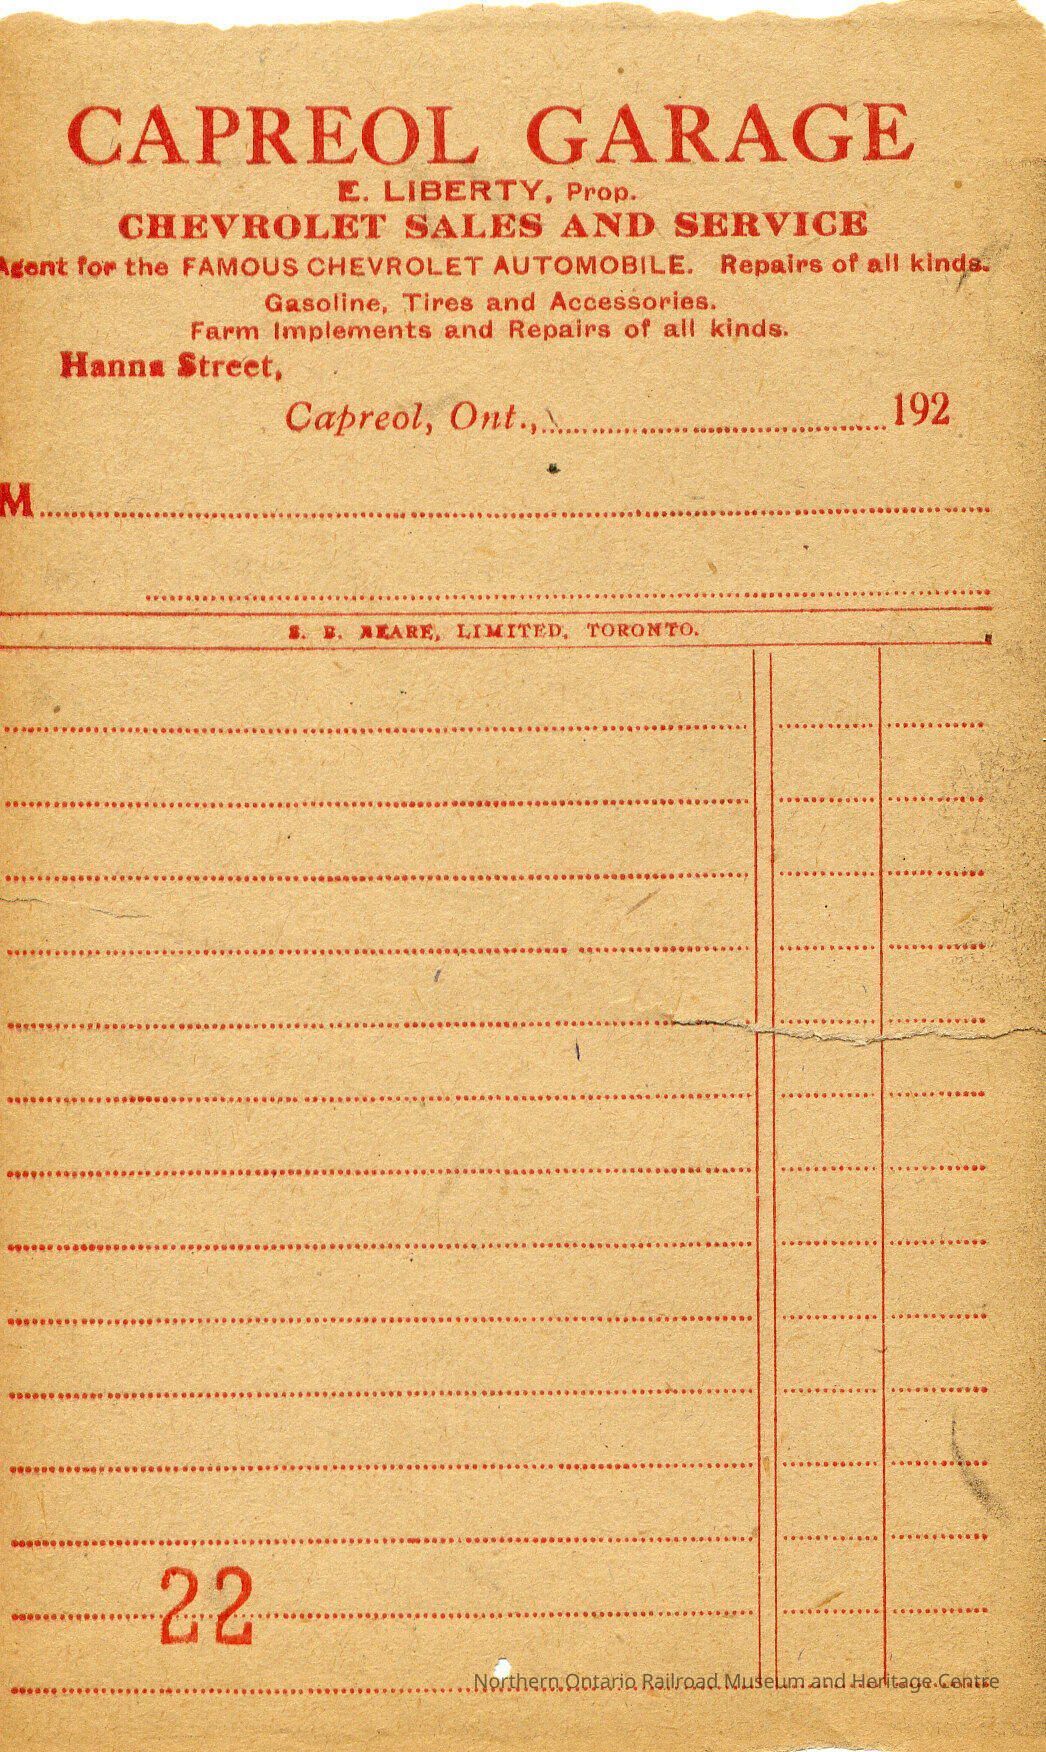 CAPREOL GARAGE
E. LIBERTY, Prop.
CHEVROLET SALES AND SERVICE
Agent for the FAMOUS CHEVROLET AUTOMOBILE. Repairs of all kinds.
Gasoline, Tires and Accessories.
Farm Implements and Repairs of all kinds.
Hanna Street,
Capreol, Ont.,..............................192
M
LIMITED, TORONTO.
22
Northern Ontario Railroad Museum and Heritage Centre